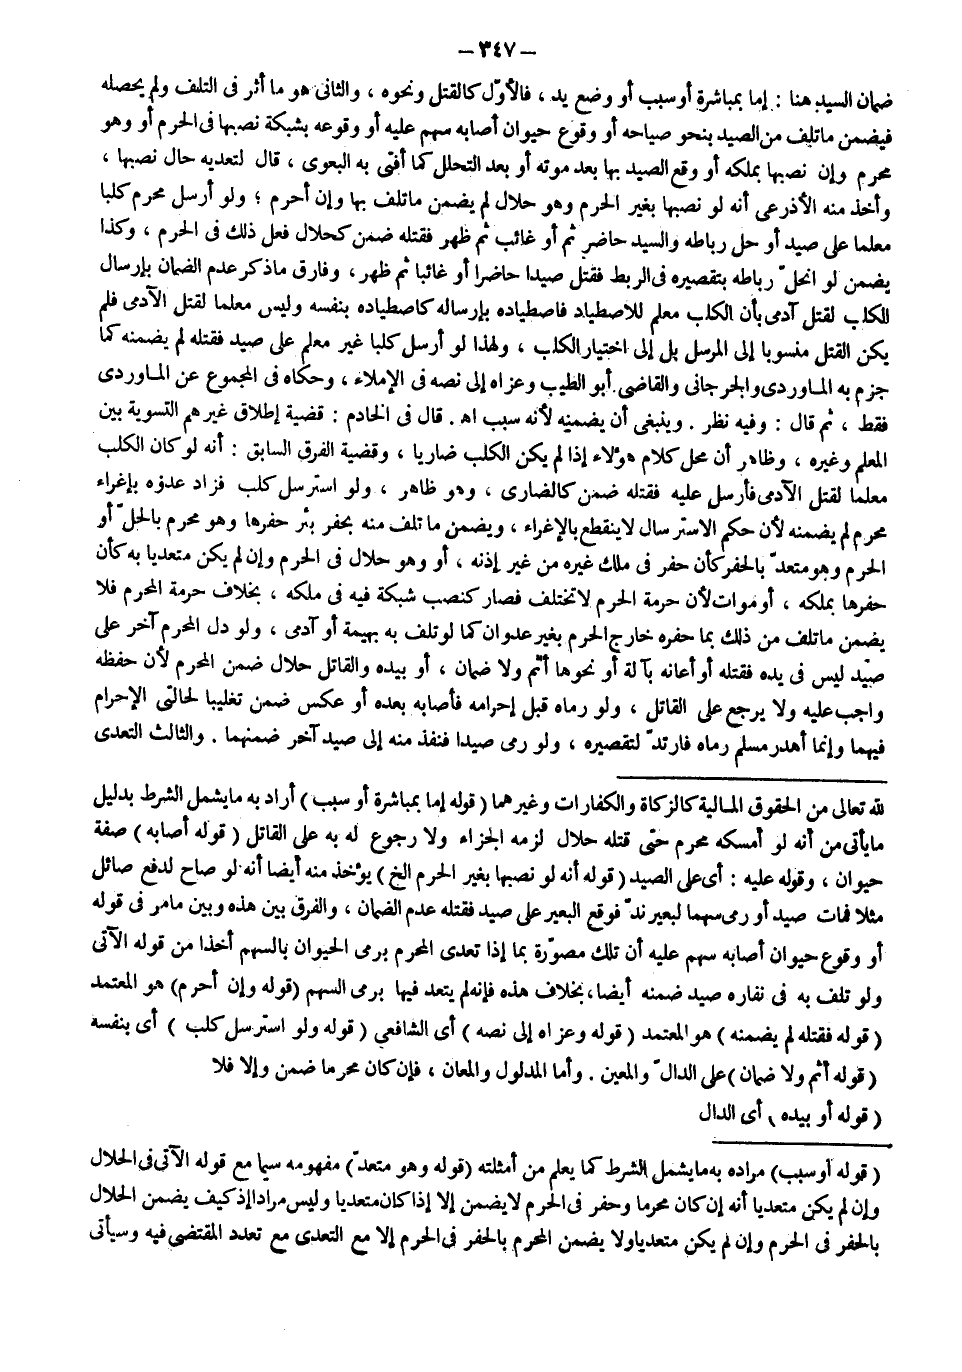 — ٣٤٧ —
ضمان السيد هنا : إما بمباشرة أو سبب أو وضع يد ، فالأوّل كالقتل ونحوه ، والثانى هو ما أثر فى التلف ولم يحصله
فيضمن ماتلف من الصيد بنحو صياحه أو وقوع حيوان أصابه سهم عليه أو وقوعه بشبكة نصبها فى الحرم أو وهو
محرم وإن نصبها بملكه أو وقع الصيد بها بعد موته أو بعد التحلل كما أفتى به البغوى ، قال لتعديه حال نصبها ،
وأخذ منه الأذرعى أنه لو نصبها بغير الحرم وهو حلال لم يضمن ماتلف بها وإن أحرم ؛ ولو أرسل محرم كلبا
معلما على صيد أو حل رباطه والسيد حاضر ثم أو غائب ثم ظهر فقتله ضمن كحلال فعل ذلك فى الحرم ، وكذا
يضمن لو انحلّ رباطه بتقصيره فى الربط فقتل صيدا حاضرا أو غائبا ثم ظهر ، وفارق ماذكر عدم الضمان بإرسال
الكلب لقتل آدمى بأن الكلب معلم للاصطياد فاصطياده بإرساله كاصطياده بنفسه وليس معلما لقتل الآدمى فلم
يكن القتل منسوبا إلى المرسل بل إلى اختيار الكلب ، ولهذا لو أرسل كلبا غير معلم على صيد فقتله لم يضمنه كما
جزم به الماوردى والجرجانى والقاضى أبو الطيب وعزاه إلى نصه فى الإملاء ، وحكاه فى المجموع عن الماوردى
فقط ، ثم قال : وفيه نظر . وينبغى أن يضمنه لأنه سبب اه . قال فى الخادم : قضية إطلاق غيرهم التسوية بين
المعلم وغيره ، وظاهر أن محل كلام هؤلاء إذا لم يكن الكلب ضاريا ، وقضية الفرق السابق : أنه لو كان الكلب
معلما لقتل الآدمى فأرسل عليه فقتله ضمن كالضارى ، وهو ظاهر ، ولو استرسل كلب فزاد عدوه بإغراء
محرم لم يضمنه لأن حكم الاسترسال لاينقطع بالإغراء ، ويضمن ماتلف منه بحفر بئر حفرها وهو محرم بالحلّ أو
الحرم وهو متعدّ بالحفر كأن حفر فى ملك غيره من غير إذنه ، أو وهو حلال فى الحرم وإن لم يكن متعديا به كأن
حفرها بملكه ، أو موات لأن حرمة الحرم لاتختلف فصار كنصب شبكة فيه فى ملكه ، بخلاف حرمة المحرم فلا
يضمن ماتلف من ذلك بما حفره خارج الحرم بغير عدوان كما لو تلف به بهيمة أو آدمى ، ولو دل المحرم آخر على
صيد ليس فى يده فقتله أو أعانه بآلة أو نحوها أثم ولا ضمان ، أو بيده والقاتل حلال ضمن المحرم لأن حفظه
واجب عليه ولا يرجع على القاتل ، ولو رماه قبل إحرامه فأصابه بعده أو عكس ضمن تغليبا لحالتى الإحرام
فيهما وإنما أهدر مسلم رماه فارتدّ لتقصيره ، ولو رمى صيدا فنفذ منه إلى صيد آخر ضمنهما . والثالث التعدى
لله تعالى من الحقوق المالية كالزكاة والكفارات وغيرهما ( قوله إما بمباشرة أو سبب ) أراد به مايشمل الشرط بدليل
مايأتى من أنه لو أمسكه محرم حتى قتله حلال لزمه الجزاء ولا رجوع له به على القاتل ( قوله أصابه ) صفة
حيوان ، وقوله عليه : أى على الصيد ( قوله أنه لو نصبها بغير الحرم الخ ) يؤخذ منه أيضا أنه لو صاح لدفع صائل
مثلا فمات صيد أو رمى سهما لبعير ندّ فوقع البعير على صيد فقتله عدم الضمان ، والفرق بين هذه وبين مامر فى قوله
أو وقوع حيوان أصابه سهم عليه أن تلك مصوّرة بما إذا تعدى المحرم برمى الحيوان بالسهم أخذا من قوله الآتى
ولو تلف به فى نفاره صيد ضمنه أيضا ، بخلاف هذه فإنه لم يتعد فيها برمى السهم ( قوله وإن أحرم ) هو المعتمد
( قوله فقتله لم يضمنه ) هو المعتمد ( قوله وعزاه إلى نصه ) أى الشافعي ( قوله ولو استرسل كلب ) أى بنفسه
( قوله أثم ولا ضمان ) على الدالّ والمعين . وأما المدلول والمعان ، فإن كان محرما ضمن وإلا فلا
( قوله أو بيده ) أى الدال
( قوله أو سبب ) مراده به مايشمل الشرط كما يعلم من أمثلته ( قوله وهو متعدّ ) مفهومه سيما مع قوله الآتى فى الحلال
وإن لم يكن متعديا أنه إن كان محرما وحفر فى الحرم لايضمن إلا إذا كان متعديا وليس مرادا إذ كيف يضمن الحلال
بالحفر فى الحرم وإن لم يكن متعديا ولا يضمن المحرم بالحفر فى الحرم إلا مع التعدى مع تعدد المقتضى فيه وسيأتى